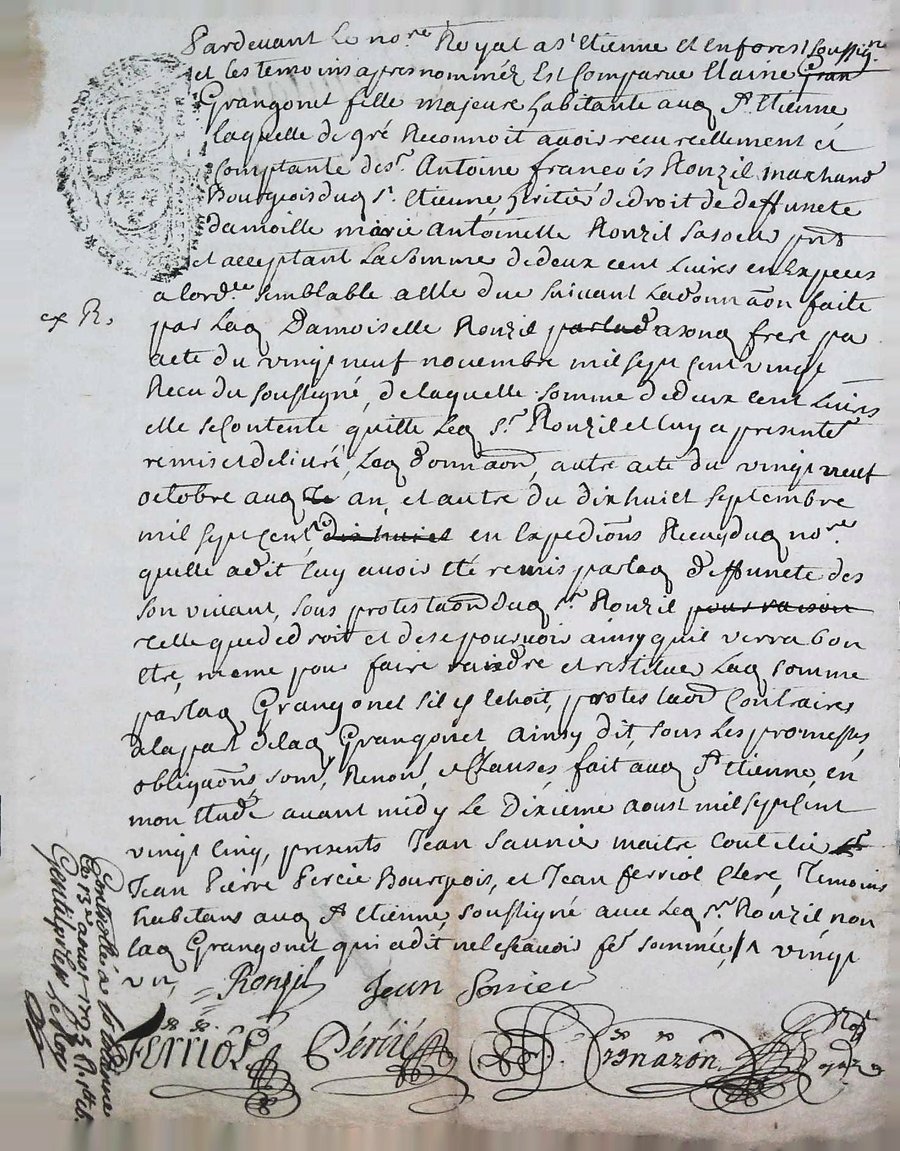 Pardevant Le no.re Royal a S.t Etienne et en forest soussig.ne
et les temoins apres nommés Est Comparue Claire Gran
Grangonet fille majeure habitante aud S.t Etienne
laquelle de gré Reconnoit avoir recu reellement et
Comptant de s.r Antoine francois Ronzil marchand
Bourgeois dud S.t Etienne heritié de droit de deffuncte
damoille marie Antoinette Ronzil sa soeur pnt
et acceptant La somme de deux cent Livres en Especes
a lord.re semblable a elle due suivant La donnaon faite
ex R.
par Lad Damoiselle Ronzil par lad a sond frere par
acte du vingt neuf novembre mil sept cent vingt
Recu du soussigné, de laquelle somme de deux cent Livres
elle se Contente quitte Led S.r Ronzil et luy a presentem.t
remis et delivré, Lad donnaon, autre acte du vingt neuf
octobre aud an, et autre du dixhuict septembre
mil sept cent dixhuict en Expedions Recus dud no.re
quelle a dit luy avoir été remis par lad deffuncte des
son vivant, sous protestaon dud S.r Ronzil pour raison
telle que de droit et de se pourvoir ainsy quil verra bon
etre, meme pour faire raindre et restituer Lad somme
par lad Grangonet sil y echoit, protestaon Contraires
de la part de lad Grangonet Ainsy dit, sous Les promesses,
obligaons, soum, Renon, et Clauses, fait aud S.t Etienne, en
mon Etude avant midy Le Dixieme aoust mil sept Cent
vingt Cinq, presents Jean Saunier maitre Coutelier
Jean Pierre Percie Bourgeois, et Jean ferriol Clerc, Temoins
habitans aud S.t Etienne, soussigné avec Led S.r Ronzil non
lad Grangonet qui a dit ne le scavoir de ce sommée, vingt
un,
Ronzil Jean Sonier
Ferriol Percié
Controllé a St Etienne
le 13.e aoust 1725